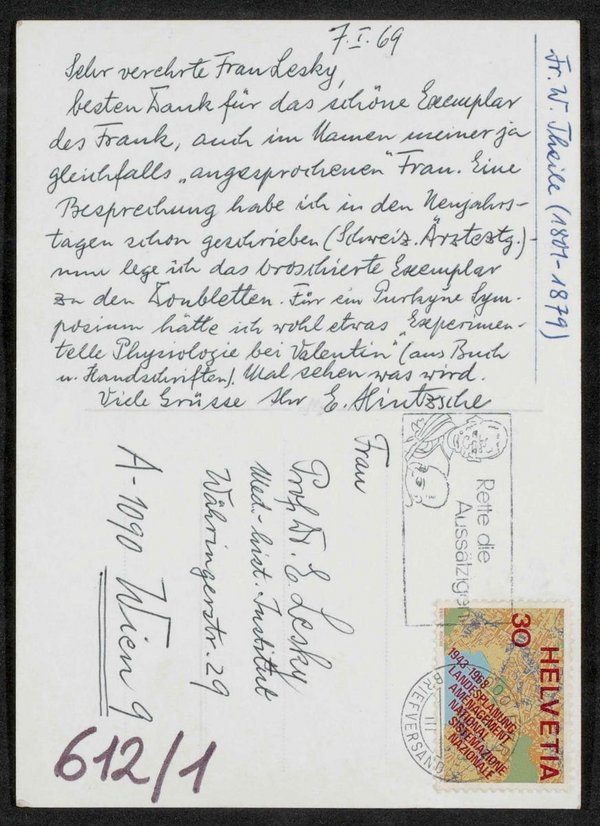 7.I.69
Sehr verehrte Frau Lesky,
besten Dank für das schöne Exemplar
des Frank, auch im Namen meiner ja
gleichfalls „angesprochenen" Frau. Eine
Besprechung habe ich in den Neujahrs-
tagen schon geschrieben (Schweiz. Ärzteztg.) -
nun lege ich das broschierte Exemplar
zu den Doubletten. Für ein Purkyne Sym-
posium hätte ich wohl etwas „Experimen-
telle Physiologie bei Valentin" (aus Buch
u. Handschriften). Mal sehen was wird.
Viele Grüsse Ihr E. Hintzsche
Fr. W. Theile (1801-1879)
Frau
Prof. Dr. E. Lesky
Med.-hist. Institut
Währingerstr. 29
A-1090 Wien 9
Rette die
Aussätzigen
30 HELVETIA
1943-1968
LANDESPLANUNG
AMENAGEMENT
NATIONAL
SISTEMAZIONE
NAZIONALE
BRIEFVERSAND
612/1